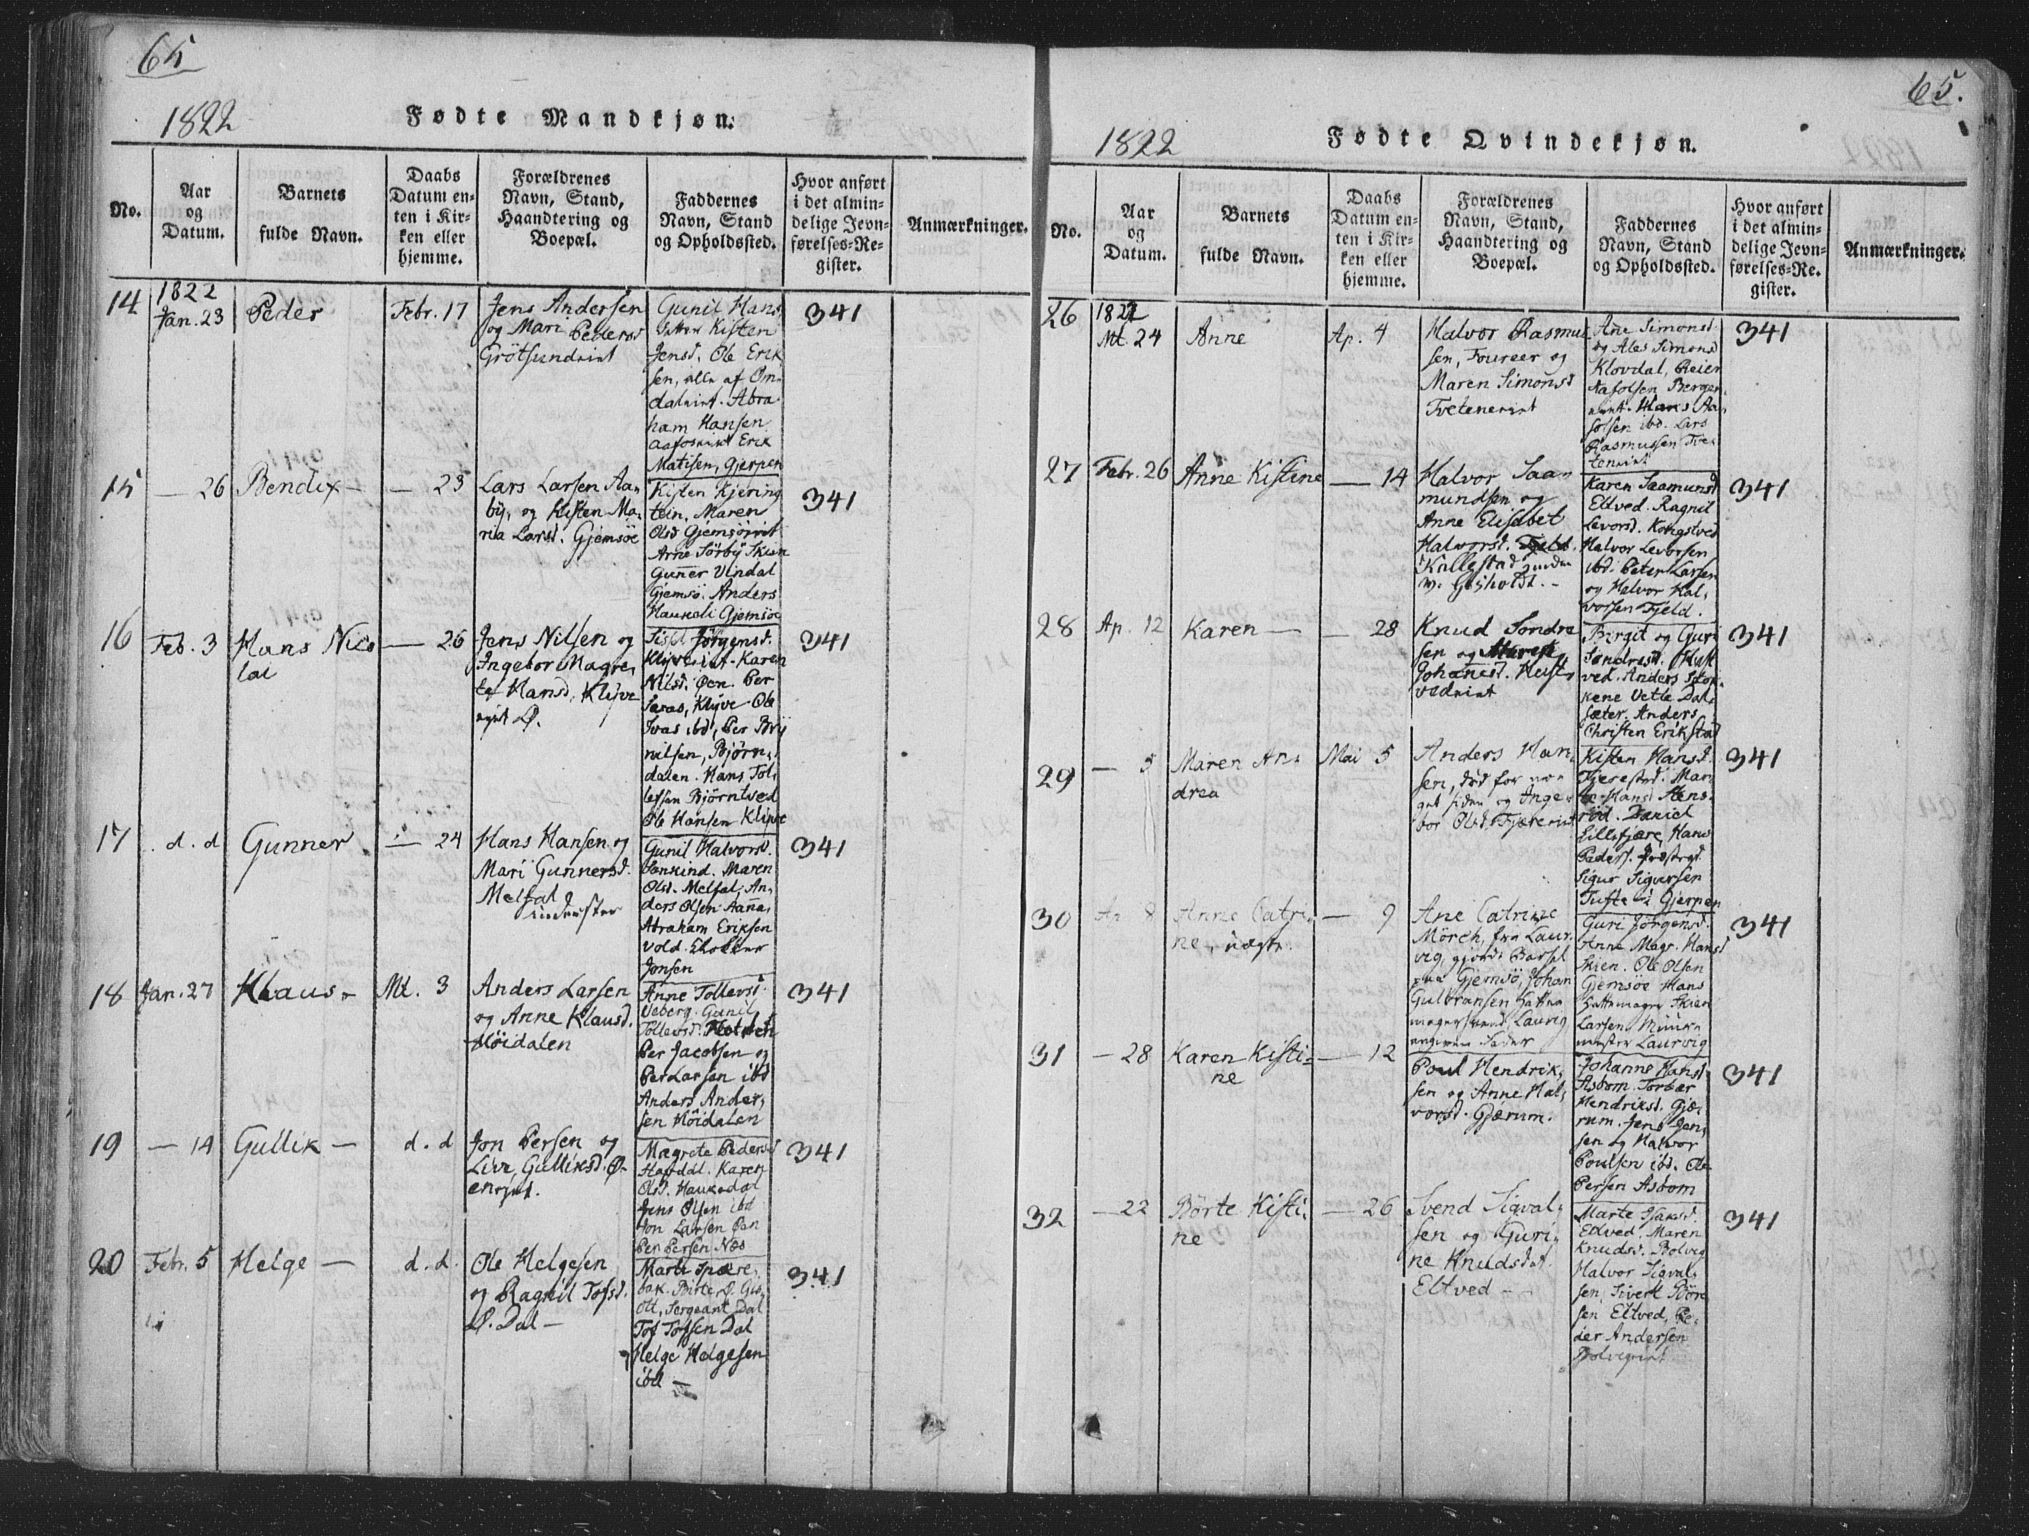 65
1822
Fødte Mandkjøn.
No.
Aar
og
Datum.
Barnets
fulde Navn.
Daabs
Datum en-
ten i Kir-
ken eller
hjemme.
Forældrenes
Navn, Stand,
Haandtering og
Boepæl.
Faddernes
Navn, Stand
og Opholdssted.
Hvor anført
i det almin-
delige Jevn-
førelses-Re-
gister.
Anmærkninger.
14
1822
Jan. 23
Peder
Febr. 17
Jens Andersen
og Mari Pedersd
Grötsundeiet
Gunil Hans
Kisten
Jensd, Ole Erik
sen, alle af Om
Abra
ham Hansen
Erik
Matisen, Gjerpen
341
15
— 26
Bendix —
— 25
Lars Larsen Aa-
by, og Kisten Ma-
ria Larsd. Gjemsöe
Kisten Kjering
tein, Maren
Olsd Gjemsöeiet
Arne Sörby Skien
Guner Vindal
Gjemsö. Anders
Haukeli Gjemsöe
341
16
Feb. 3
Hans Nico
lai
— 26
Jens Nilsen og
Ingebor Magre,
te Hansd, Klyve
eiet Ø.
Jörgensd.
Karen
Nilsd. Øen. Per
Klyve Ole
ibd, Per Bry
nilsen, Björn,
dalen. Hans Tol
lefsen Björntved
Ole Hansen Klyve
341
17
d. d
Gunner
— 24
Hans Hansen og
Mari Gunnersd.
Melfal
inderster
Gunil Halvorsd.
Maren
Olsd. Melfal, An,
ders Olsen
Abraham Eriksen
Vold.
Jonsen
341
18
Jan. 27
Klaus
Mt. 3
Anders Larsen
og Anne Klausd.
Höidalen
Anne Tollevsd.
Veberg. Gunil
Tollevsd.
Per Jacobsen og
Per Larsen ibd
Anders Ander,
sen Höidalen
341
19
— 14
Gullik —
d. d
Jon Persen og
Live Gulliksd. Ø-
eneiet.
Magrete Pedersd
Karen
Olsd. Haukedal
Jens Olsen ibd
Jon Larsen
Per Persen Næs
341
20
Febr. 5
Helge —
d. d.
Ole Helgesen
og Ragnil Tofsd.
Ø. Dal —
Marte
bak. Birte Ø. Gis
Sergeant Dal
Tof Tofsen Dal
Helge Helgesen
ibd —
341
65.
1822
Fødte Qvindekjøn.
No.
Aar
og
Datum.
Barnets
fulde Navn.
Daabs
Datum en-
ten i Kir-
ken eller
hjemme.
Forældrenes
Navn, Stand,
Haandtering og
Boepæl.
Faddernes
Navn, Stand
og Opholdssted.
Hvor anført
i det almin-
delige Jevn-
førelses-Re-
gister.
Anmærkninger.
26
1822
Mt. 24
Anne
Ap. 4
Halvor Rasmus
sen, Foureer og
Maren Simonsd
Tveteneeiet
Ane Simonsd
og Ales Simonsd
Klovdal, Reier
Hans Aa,
sen ibd. Lars
Rasmussen Tve
teneeiet
341
27
Febr. 26
Anne Kistine
— 14
Halvor Saa
mundsen og
Anne Elisabet
Halvorsd.
Kallestad
Karen Saamunsd
Eltved. Ragnil
Levorsd. Kongstved
Halvor Levorsen
ibd. Peter Larsen
og Halvor Hal,
vorsen Fjeld.
341
28
Ap. 12
Karen —
— 28
Knud Sondre
sen og Maren
Johanesd.
Birgit og Guri
Sondresd.
ved. Anders Stok
kene Vetle Dal,
sæter. Anders
Christen Erikstad
341
29
— 5
Maren An,
drea
Mai 5
Anders Han,
sen, död for no-
get siden og Inge-
bor Olsd. Fjæreeiet
Kisten Hansd.
Mari
Hansd
röd. Daniel
Lillefjære, Hans
Peders.
Sigur Sigursen
Tufte i Gjerpen
341
30
Ap 8
Anne Catri-
ne, uægte.
— 9
Ane Catrine
Mörch, fra Laur
vig, gjorde Barsel
paa Gjemsö, Johan
Gulbransen hatte
magersvend, Laurvig
angiven Fader
Guri Jörgensd.
Anne Magr. Hansd
Skien. Ole Olsen
Gjemsöe Hans
hattemager Skien
Larsen
Laurvig
341
31
— 28
Karen Kisti-
ne
— 12
Poul Hendrik,
sen og Anne Hal,
vorsd. Gjærum.
Johanne Hansd
Asbom. Torber
Hendriksd. Gjæ,
rum. Jens Jen,
sen og Halvor
Poulsen ibd. Ole
Persen Asbom
341
32
— 22
Börte Kisti,
ne
— 26
Svend Sigval,
sen og Guri-
ne Knudsdat.
Eltved —
Marte Isaksd.
Eltved. Maren
Knudsd. Bolvig
Halvor Sigval,
sen, Sivert Bör
sen Eltved, Pe-
der Andersen
Bolvigeiet
341